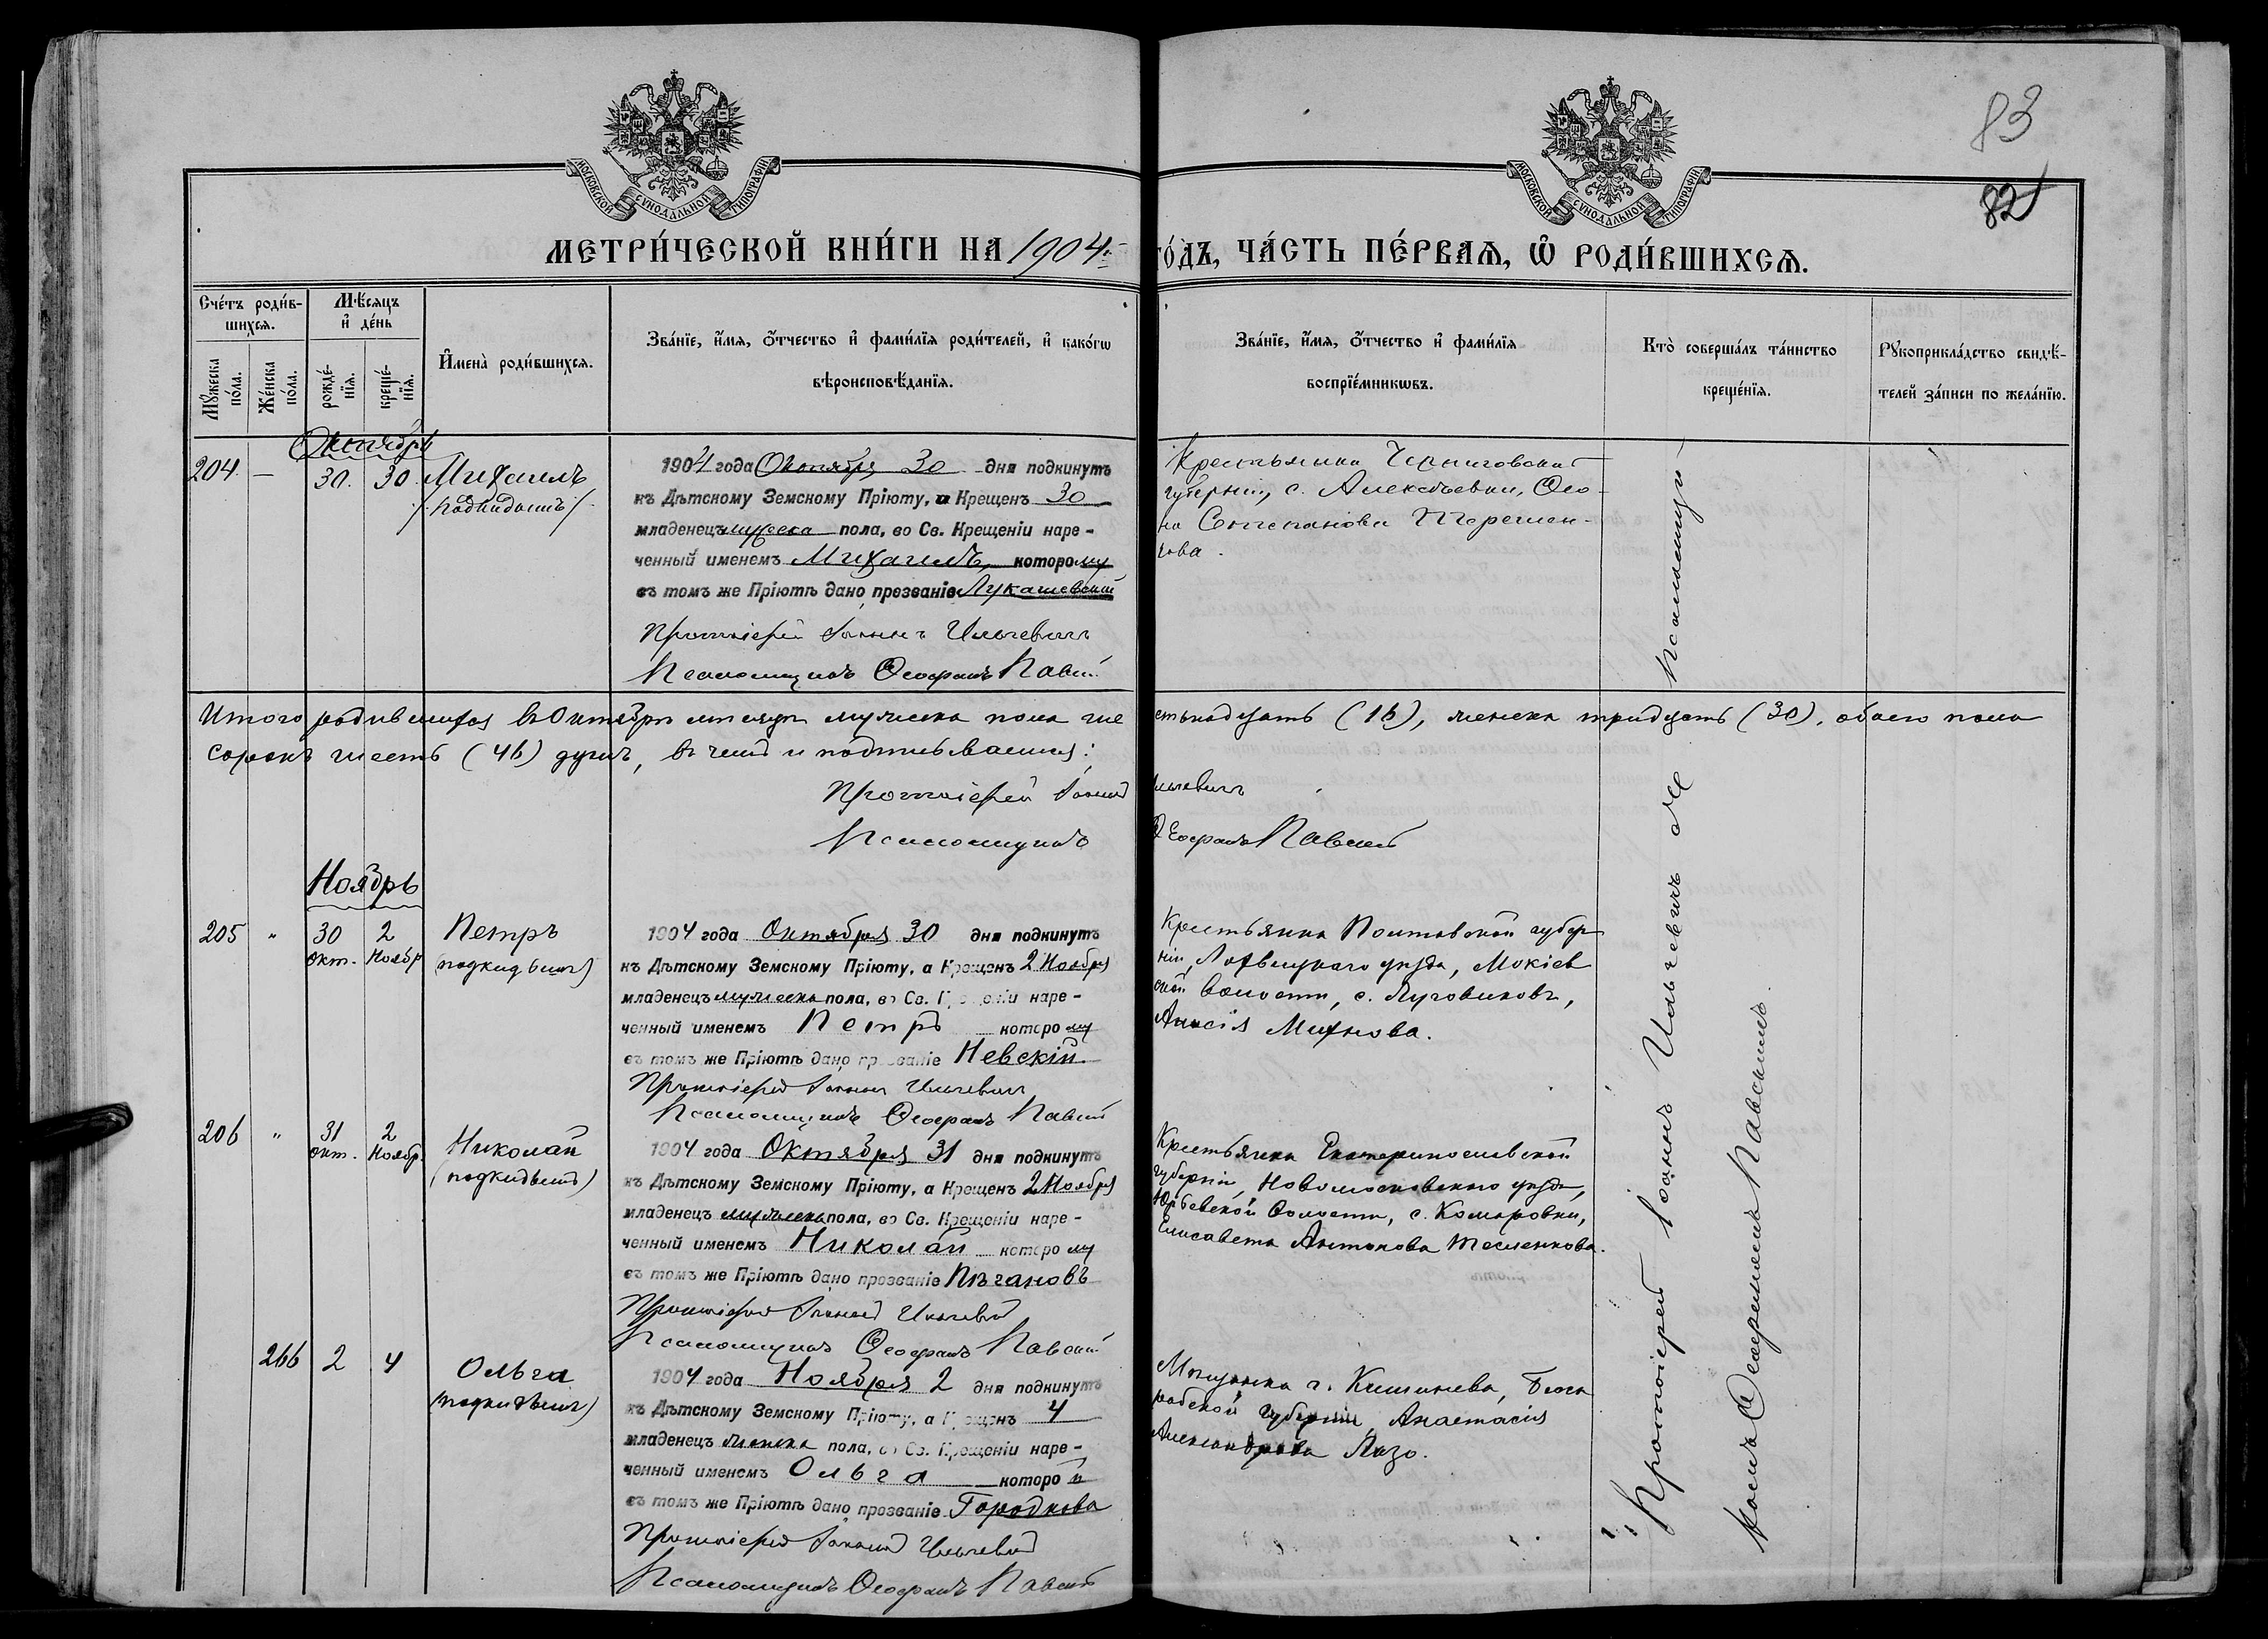 83
82
МОСКОВСКОЙ СѴНОДАЛЬНОЙ ТИПОГРАФІИ
МОСКОВСКОЙ СѴНОДАЛЬНОЙ ТИПОГРАФІИ
МЕТРИ́ЧЕСКОЙ КНИ́ГИ НА 1904 г. ГО́ДЪ, ЧА́СТЬ ПЕ́РВАѦ, Ѽ РОДИ́ВШИХСѦ.
Сче́тъ роди́в-
шихсѧ.
Мꙋжеска по́ла.
Же́нска по́ла.
Мѣсѧцъ
и҆ де́нь
рожде́-
нїѧ.
креще́-
нїѧ.
И҆мена̀ роди́вшихсѧ.
Зва́нїе, и҆́мѧ, ѻ҆́тчество и҆ фами́лїѧ роди́телей, и҆ како́гѡ
вѣроисповѣ́данїѧ.
Зва́нїе, и҆́мѧ, ѻ҆́тчество и҆ фами́лїѧ
воспрїе́мникѡвъ.
Кто̀ соверша́лъ та́инство
креще́нїѧ.
Рꙋкоприкла́дство свидѣ́-
телей за́писи по жела́нїю.
Октябрь
204. — 30. 30. Михаилъ
/подкидышъ/
1904 года Октября 30 дня подкинутъ
къ Дѣтскому Земскому Пріюту, и Крещенъ 30
младенецъ мужеска пола, во Св. Крещеніи наре-
ченный именемъ Михаилъ, которому
въ томъ же Пріютѣ дано прозваніе Лукашевскій
Протоіерей Іоаннъ Ильчевичъ
Псаломщикъ Ѳеофанъ Павскій
Крестьянка Черниговской
губерніи, с. Алексѣевки, Ѳео-
на Стефанова Терешен-
кова.
Итого родившихся въ Октябрѣ мѣсяцѣ мужеска пола шестьнадцать (16), женска тридцать (30), обоего пола
сорокъ шесть (46) душъ, въ чемъ и подписываемся:
Протоіерей Іоаннъ Ильчевичъ
Псаломщикъ Ѳеофанъ Павскій
Ноябрь
205 " 30 Окт. 2 Ноябр. Петръ
(подкидышъ)
1904 года Октября 30 дня подкинутъ
къ Дѣтскому Земскому Пріюту, а Крещенъ 2 Ноября
младенецъ мужеска пола, во Св. Крещеніи наре-
ченный именемъ Петръ которому
въ томъ же Пріютѣ дано прозваніе Невскій
Протоіерей Іоаннъ Ильчевичъ
Псаломщикъ Ѳеофанъ Павскій
Крестьянка Полтавской губер-
ніи, Лохвицкаго уѣзда, Мокіев
ской волости, с. Луговиковъ,
Анисія Михнова.
206 " 31 Окт. 2 Ноябр. Николай
(подкидышъ)
1904 года Октября 31 дня подкинутъ
къ Дѣтскому Земскому Пріюту, а Крещенъ 2 Ноября
младенецъ мужеска пола, во Св. Крещеніи наре-
ченный именемъ Николай которому
въ томъ же Пріютѣ дано прозваніе Пѣгановъ
Протоіерей Іоаннъ Ильчевичъ
Псаломщикъ Ѳеофанъ Павскій
Крестьянка Екатеринославской
губерніи, Новомосковскаго уѣзда,
Юрьевской волости, с. Комаровки,
Елисавета Антонова Тесленкова.
266 2 4 Ольга
(подкидышъ)
1904 года Ноября 2 дня подкинутъ
къ Дѣтскому Земскому Пріюту, а Крещенъ 4
младенецъ женска пола, во Св. Крещеніи наре-
ченный именемъ Ольга которой
въ томъ же Пріютѣ дано прозваніе Городкова
Протоіерей Іоаннъ Ильчевичъ
Псаломщикъ Ѳеофанъ Павскій
Мѣщанка г. Кишинева, Бесса
рабской губерніи, Анастасія
Александрова Лазо.
Протоіерей Іоаннъ Ильчевичъ съ Псаломщи-
комъ Ѳеофаномъ Павскимъ